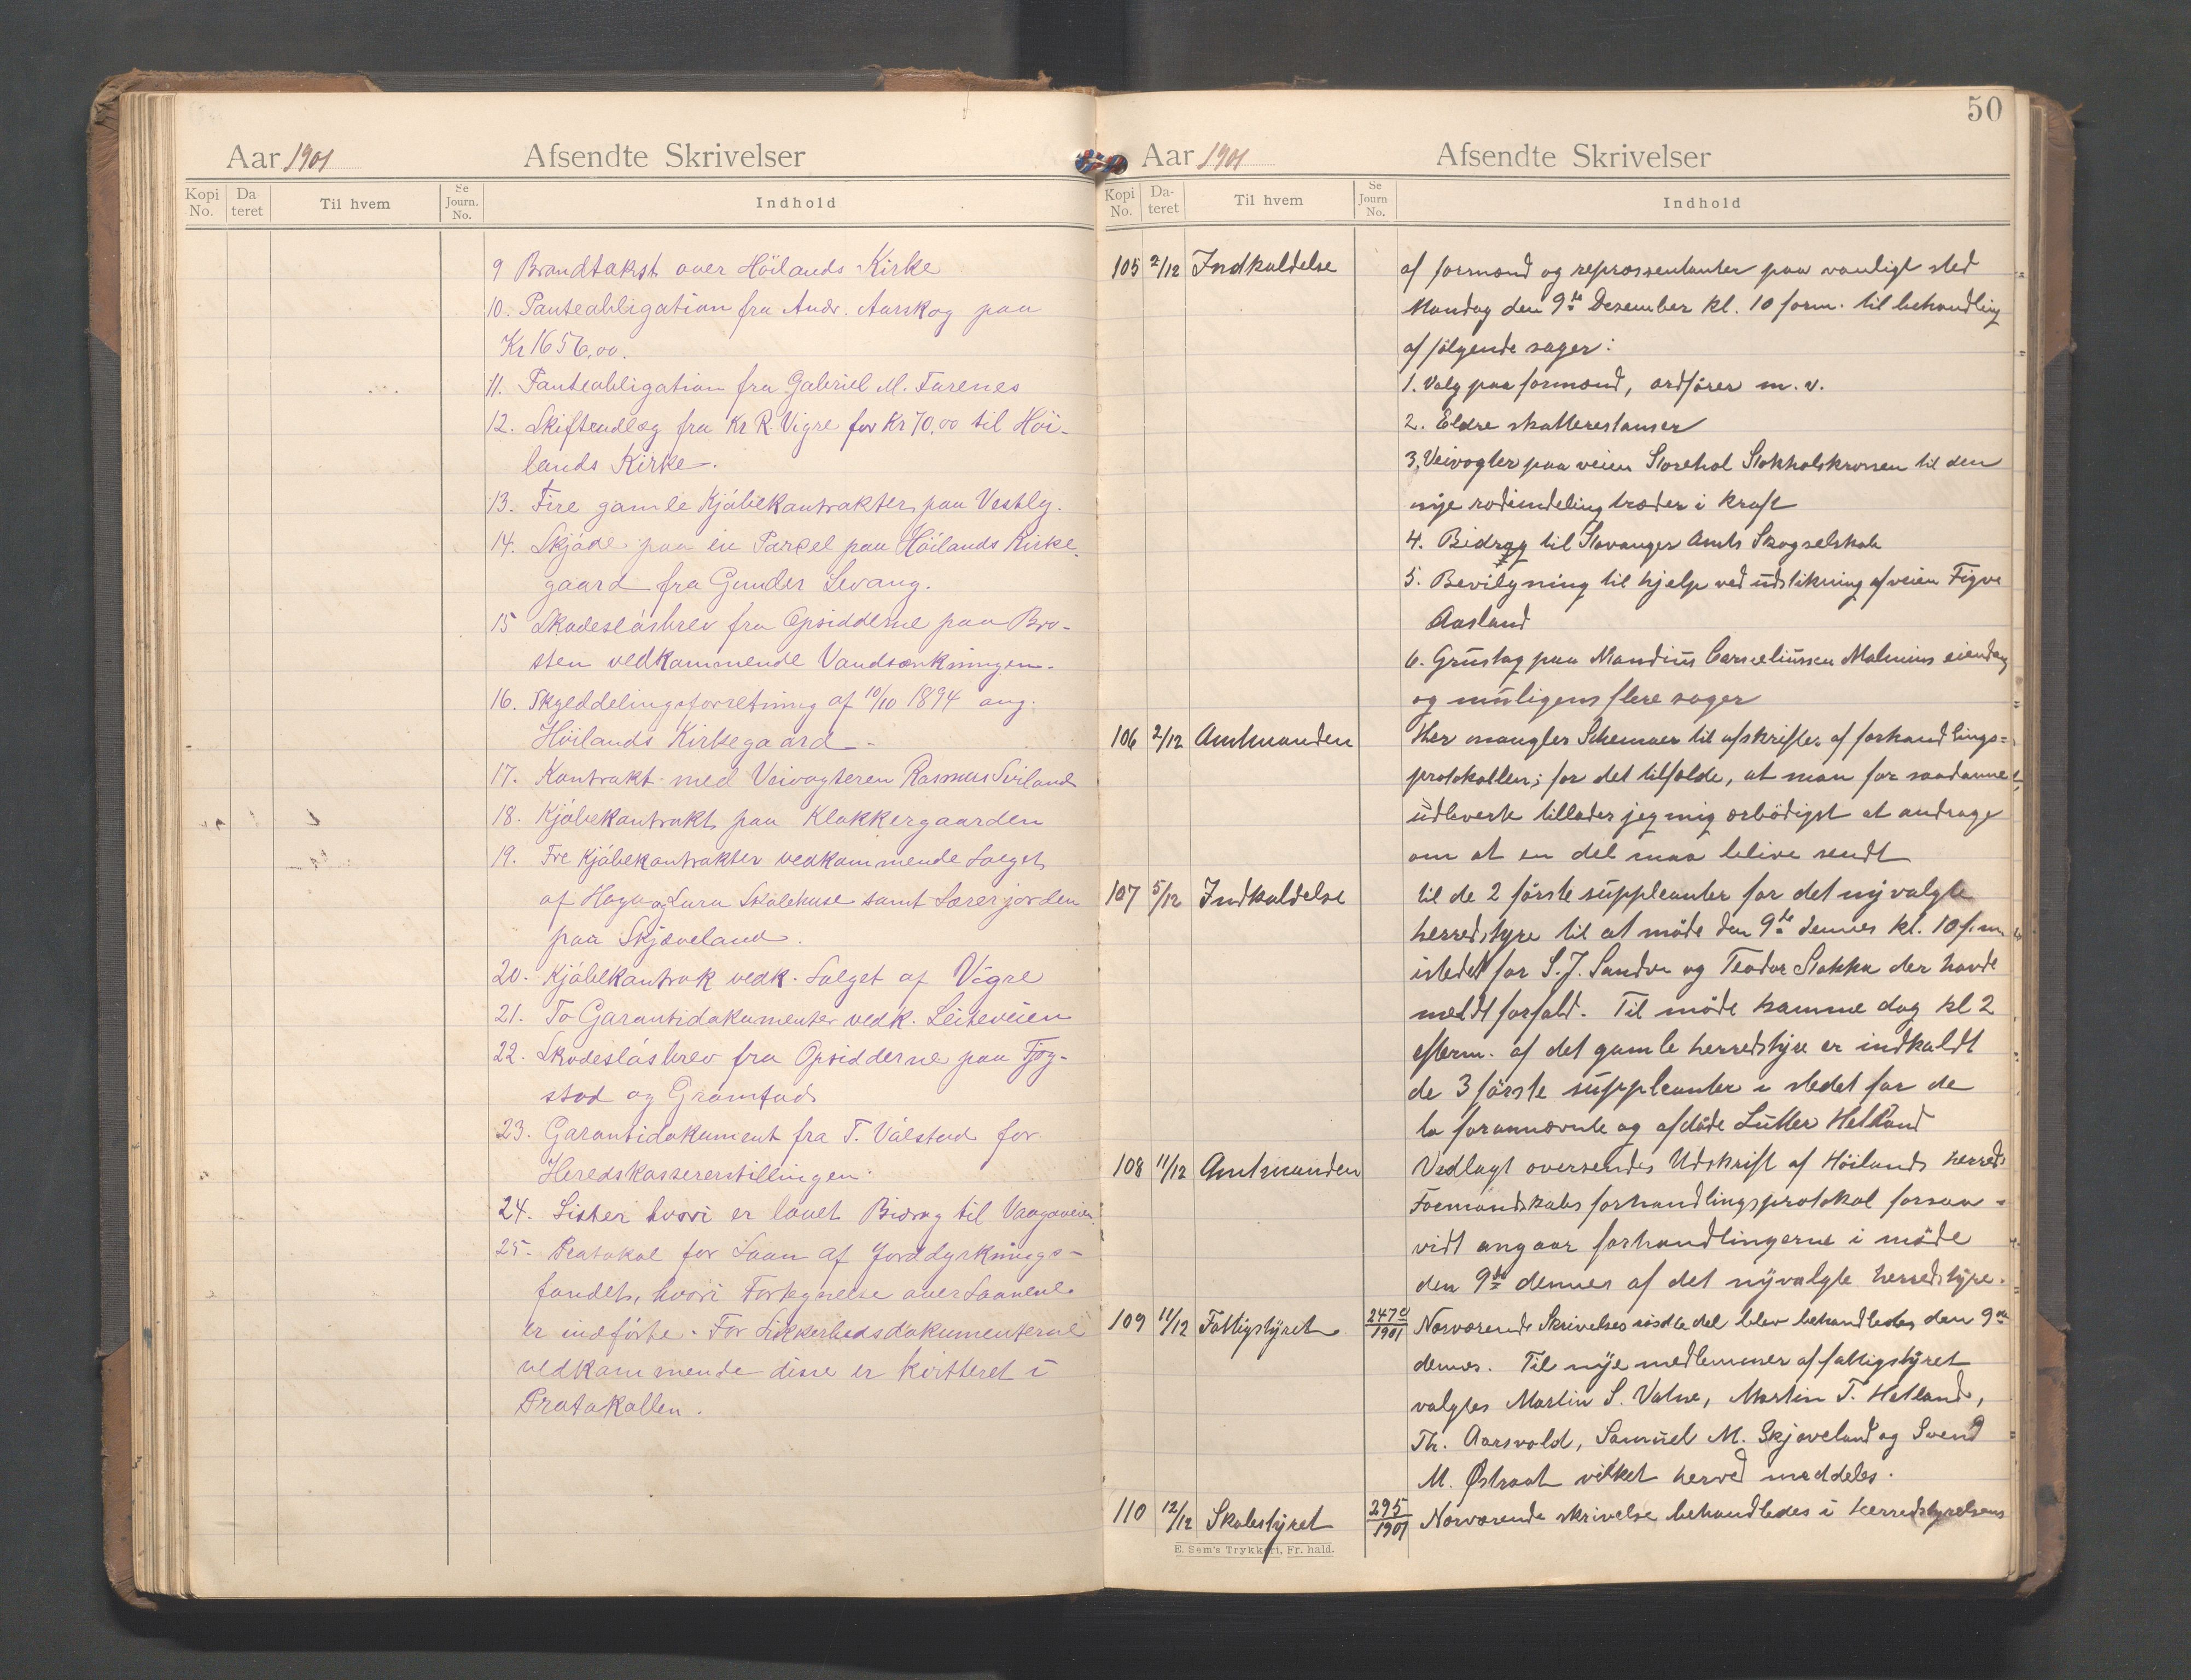 Aar 1901 Afsendte Skrivelser
Kopi No. Da teret Til hvem Se Journ. No. Indhold
9 Brandtakst over Höilands Kirke
10. Panteobligation fra Andr. Aarskog paa
Kr 1656,00.
11. Panteobligation fra Gabriel M. Farenes
12. Skifteudlæg fra Kr R. Vigre for Kr 70,00 til Höi-
lands Kirke.
13. Fire gamle Kjöbekontrakter paa Vestly.
14. Skjöde paa en Parcel paa Höilands Kirke-
gaard fra Gunder Levang.
15 Skadeslösbrev fra Opsidderne paa Bro-
sten vedkommende Vandsænkningen.
16. Skylddelingsforretning af 10/10 1894 ang.
Höilands Kirkegaard.
17. Kontrakt med Veivogteren Rasmus Sviland
18. Kjöbekontrakt paa Klokkergaarden
19. Tre Kjöbekontrakter vedkommende Salget
af Hogu og Lura Skolehuse samt Lærerjorden
paa Skjæveland.
20. Kjöbekontrak vedk. Salget af Vigre
21. To Garantidokumenter vedk. Leiteveien
22. Skadeslösbrev fra Opsidderne paa Fjog-
stad og Gramstad
23. Garantidokument fra T. Välstad for
Heredskassererstillingen.
24. Lister hvori er lovet Bidrag til Vaagaveien.
25. Protokol for Laan af Jorddyrknings-
fondet, hvori Fortegnelse over Laanene
er indförte. For Sikkerhedsdokumenterne
vedkommende disse er kvitteret i
Protokollen.
50
Aar 1901 Afsendte Skrivelser
Kopi No. Da- teret Til hvem Se Journ No. Indhold
105 2/12 Indkaldelse af formænd og repræssentanter paa vanligt sted
Mandag den 9de Desember kl. 10 form. til behandling
af fölgende sager:
1. Valg paa formænd, ordförer m. v.
2. Eldre skatterestanser
3. Veivogter paa veien Storehol Stokholskrossen til den
nye rodeindeling træder i kraft
4. Bidrag til Stavanger Amts Skogselskab
5. Bevilgning til hjelp ved udstikning af veien Figve
Aasland
6. Grustag paa Mandius Corneliussen Malmins eiendom
og muligens flere sager
106 2/12 Amtmanden Her mangler Schemaer til afskrifter af forhandlings-
protokollen; for det tilfælde, at man for saadanne
udleverte tillader jeg mig ærbödigst at andrage
om at en del maa blive sendt
107 5/12 Indkaldelse til de 2 förste suppleanter for det nyvalgte
herredstyre til at möde den 9de dennes kl. 10 f.m.
istedet for S. J. Sandve og Teodor Stokka der havde
meldt forfald. Til möde samme dag kl 2
efterm. af det gamle herredstyre er indkaldt
de 3 förste suppleanter i stedet for de
to forannævnte og afdöde Lutter Hetland
108 11/12 Amtmanden Vedlagt oversendes Udskrift af Höilands herreds
Formandskabs forhandlingsprotokol forsaa-
vidt angaar forhandlingerne i möde
den 9de dennes af det nyvalgte herredstyre.
109 11/12 Fattigstyret 247 c/1901 Nærværende Skrivelses sidste del blev behandledes den 9de
dennes. Til nye medlemmer af fattigstyret
valgtes Martin S. Vatne, Martin T. Hetland,
Th. Aarsvold, Samuel M. Skjæveland og Svend
M. Østraat vilket herved meddeles.
110 12/12 Skolestyret 295/1901 Nærværende skrivelse behandledes i herredstyrelsens
E. Sem's Trykkeri, Fr. hald.